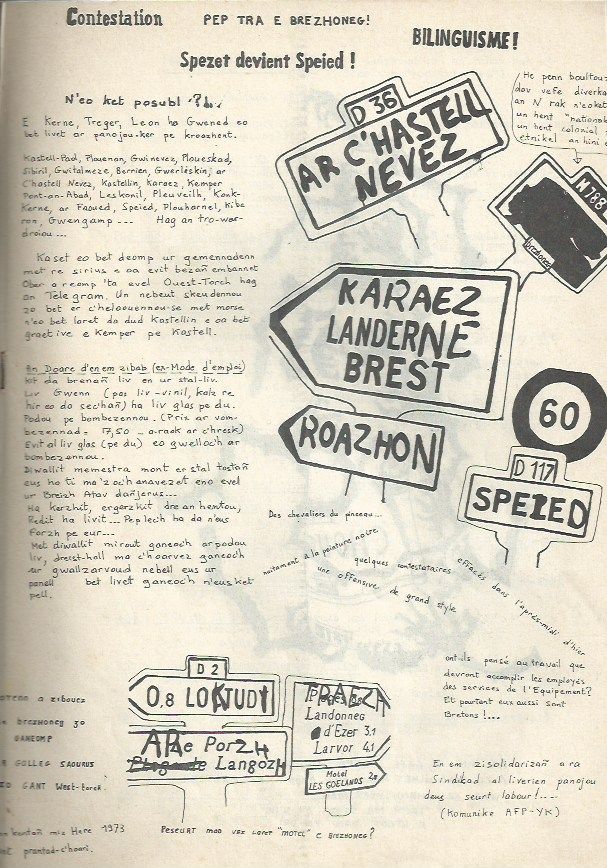 Contestation
PEP TRA E BREZHONEG!
BILINGUISME!
Spezet devient Speied !
N'eo ket posubl ?!..
E Kerne, Treger, Leon ha Gwened eo
bet livet ar panojou-ker pe kroazhent.
Kastell-Paol, Plouenan, Gwinevez, Ploueskad,
Sibiril, Gwitalmeze, Berrien, Gwerleskin, ar
C'hastell Nevez, Kastellin, Karaez, Kemper
Pont-an-Abad, Leskonil, Pleuveilh, Konk-
Kerne, ar Faoued, Speied, Plouharnel, Kibe
ron, Gwengamp --- Hag an tro-war-
droiou ...
Kaset eo bet deomp ur gemennadenn
met re sirius e oa evit bezañ embannet
Ober a reomp 'ta evel Ouest-Torch hag
an Telegram. Un nebeut skeudennou
zo bet er c'helaouennou-se met morse
n'eo bet laret da dud Kastellin e oa bet
graet ive e Kemper pe Kastell.
An Doare d'en em zibab (ex-Mode d'emploi)
Kit da brenañ liv en ur stal-liv.
Liv Gwenn (pas liv-vinil, kalz re
hir eo da sec'hañ) ha liv glas pe du.
Podou pe bombezennou. (Prix ar vom-
bezennad = 17,50 - a-raok ar c'hresk)
Evit al liv glas (pe du) eo gwelloc'h ar
bombezennou.
Diwallit memestra mont er stal tostañ
eus ho ti ma'z oc'h anavezet eno evel
ur Breizh Atav dañjerus...
Ha kerzhit, ergerzhit dre an hentou,
Redit ha livit... Pep lec'h ha da n'eus
Forzh pe eur...
Met diwallit mirout ganeoc'h ar podou
liv, dreist-holl ma c'hoarvez ganeoc'h
ur gwallzarvoud nebell eus ur
panell bet livet ganeoc'h n'eus ket
pell.
He penn boultouz
dav vefe diverka
an N rak n'eo ket
un hent "national
un hent colonial
etnikel an hini e
D 36
AR C'HASTELL
NEVEZ
N788
brezhoneg
KARAEZ
LANDERNE
BREST
60
ROAZHON
D 117
SPEIED
Des chevaliers du pinceau...
nuitament à la peinture noire
quelques contestataires
une offensive de grand style
effacés dans l'après-midi d'hier
ont-ils pensé au travail que
devront accomplir les employés
des services de l'Equipement?
Et pourtant eux aussi sont
Bretons !...
D 2
0.8 LOKTUDI
TRAEZH
Plages de
Landonneg
d'Ezer 3.1
Larvor 4.1
AR
Porzh
Plogande Langozh
Motel
LES GOELANDS
a zibouez
brezhoneg zo
GANEOMP
GOLLEG SAOURUS
GANT West-torch.
miz Here 1973
prantad-c'hoari.
PESEURT MOD VEZ LARET "MOTEL" E BREZHONEG ?
En em zisolidarizañ a ra
Sindikad al liverien panojou
deus seurt labour !....
(Komunike AFP-YK)